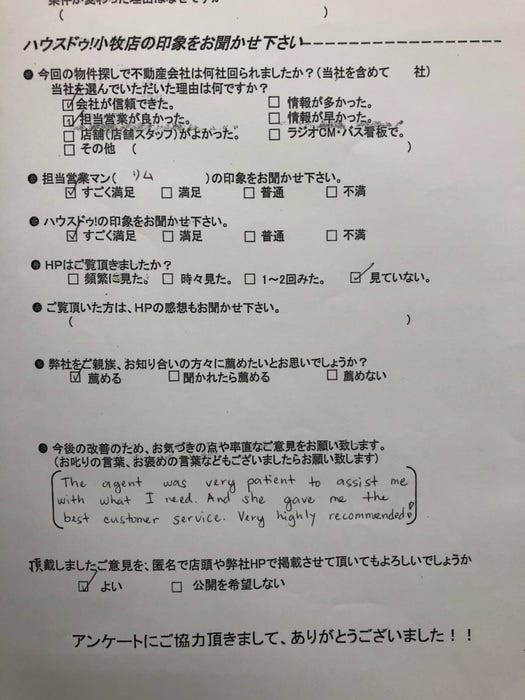 条件が変わった理由はなぜですか
(　　　)
ハウスドゥ!小牧店の印象をお聞かせ下さい
● 今回の物件探しで不動産会社は何社回られましたか?(当社を含めて　　社)
当社を選んでいただいた理由は何ですか?
☑ 会社が信頼できた。 □ 情報が多かった。
☑ 担当営業が良かった。 □ 情報が早かった。
□ 店舗(店舗スタッフ)がよかった。 □ ラジオCM・バス看板で。
□ その他 (　　　)
● 担当営業マン( リム )の印象をお聞かせ下さい。
☑ すごく満足 □ 満足 □ 普通 □ 不満
● ハウスドゥ!の印象をお聞かせ下さい。
☑ すごく満足 □ 満足 □ 普通 □ 不満
● HPはご覧頂きましたか?
□ 頻繁に見た。 □ 時々見た。 □ 1～2回みた。 ☑ 見ていない。
● ご覧頂いた方は、HPの感想もお聞かせ下さい。
(　　　)
● 弊社をご親族、お知り合いの方々に薦めたいとお思いでしょうか?
☑ 薦める □ 聞かれたら薦める □ 薦めない
● 今後の改善のため、お気づきの点や率直なご意見をお願い致します。
(お叱りの言葉、お褒めの言葉などもございましたらお願い致します)
The agent was very patient to assist me
with what I need. And she gave me the
best customer service. Very highly recommended!
頂戴しましたご意見を、匿名で店頭や弊社HPで掲載させて頂いてもよろしいでしょうか
☑ よい □ 公開を希望しない
アンケートにご協力頂きまして、ありがとうございました!!